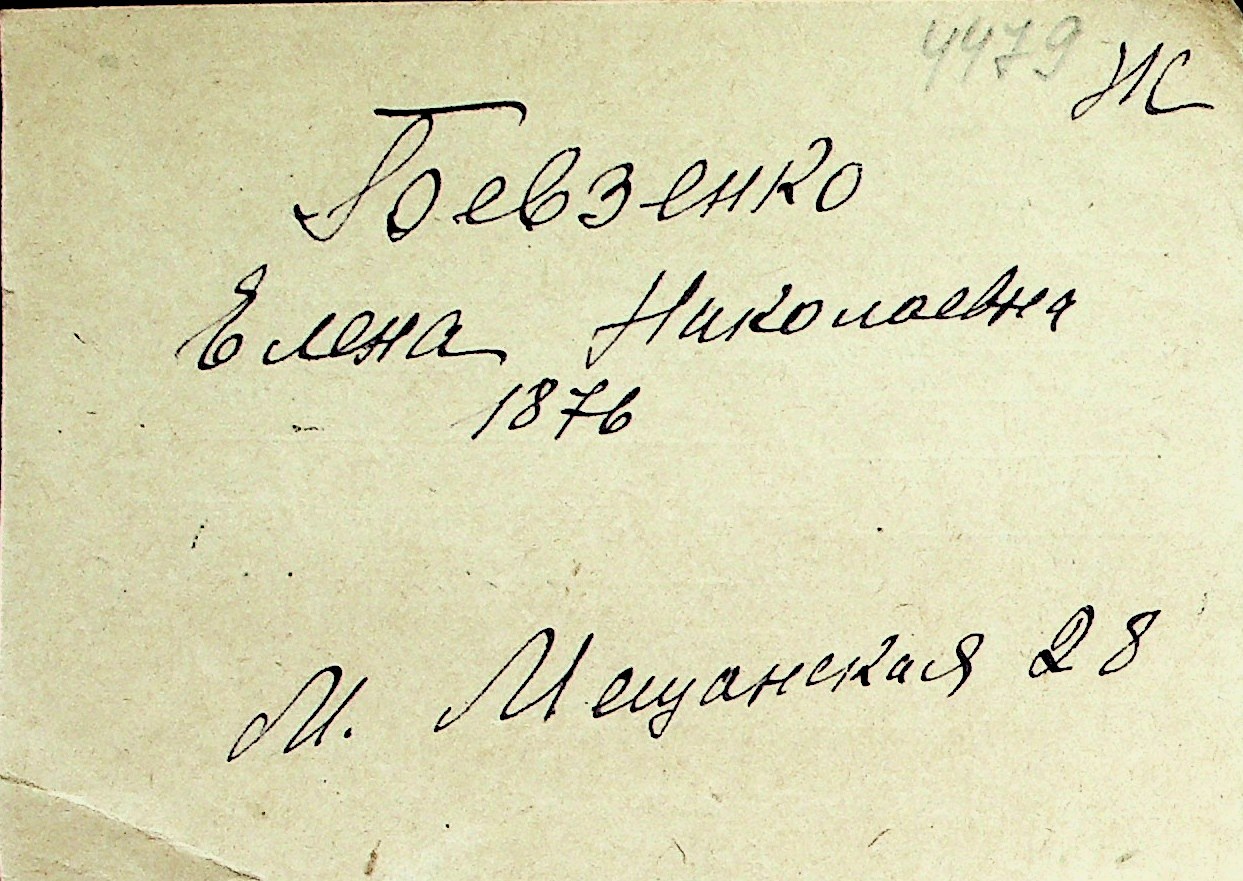 4479 Ж
Бевзенко
Елена Николаевна
1876
М. Мещанская 28